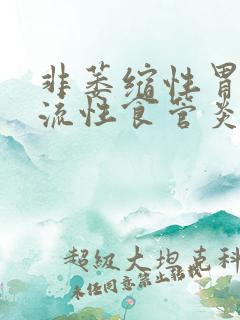 非萎缩性胃
流性食管炎
超级大坦克科
未经同意禁止转载